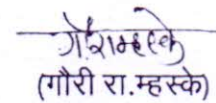 गौ.रा.म्हस्के
(गौरी रा.म्हस्के)